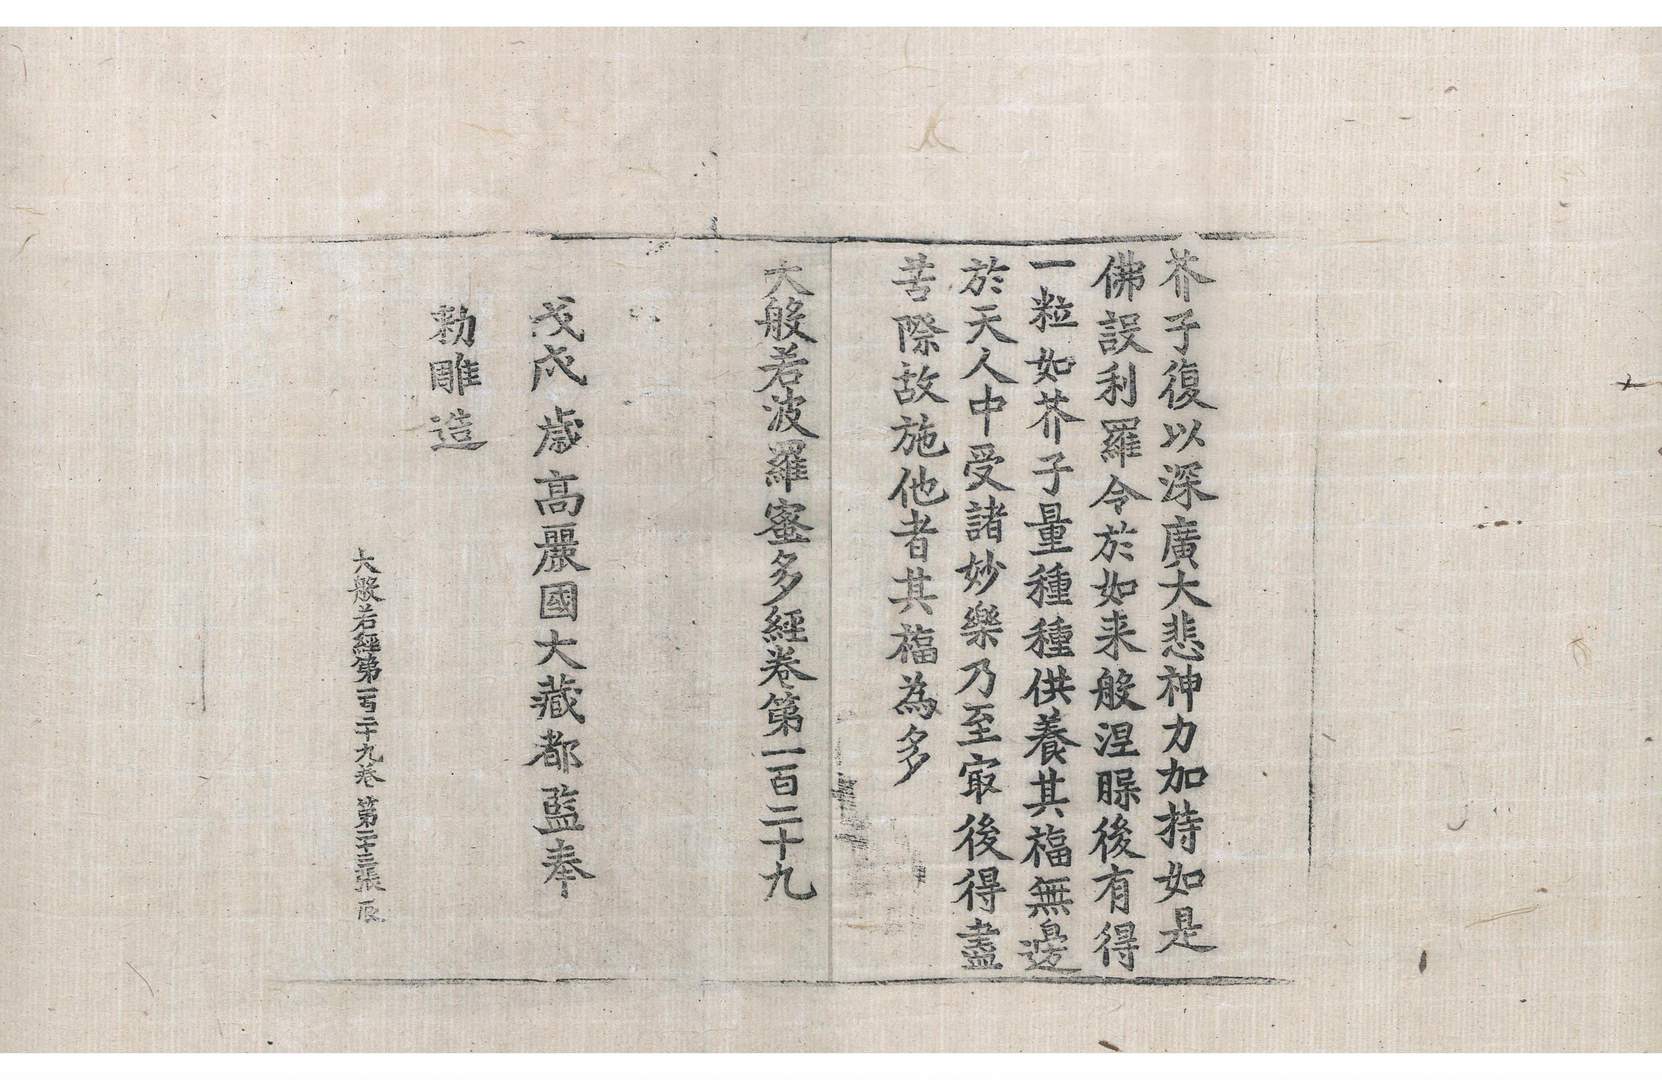 芥子復以深廣大悲神力加持如是
佛設利羅令於如来般涅腂後有得
一粒如芥子量種種供養其福無邊
於天人中受諸妙樂乃至㝡後得盡
苦際故施他者其福為多
大般若波羅蜜多經卷第一百二十九
戊戌歲高麗國大藏都監奉
勅雕造
大般若經第一百二十九卷 第二十三張 辰